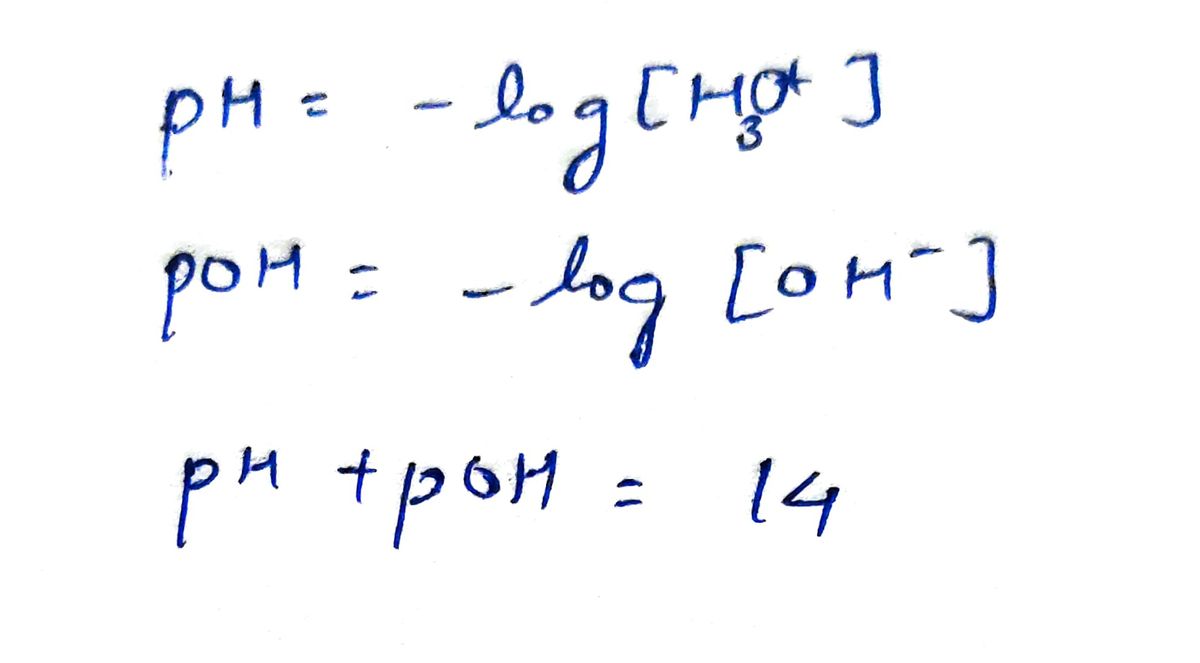 pH = - log [H₃O⁺]
pOH = - log [OH⁻]
pH + pOH = 14